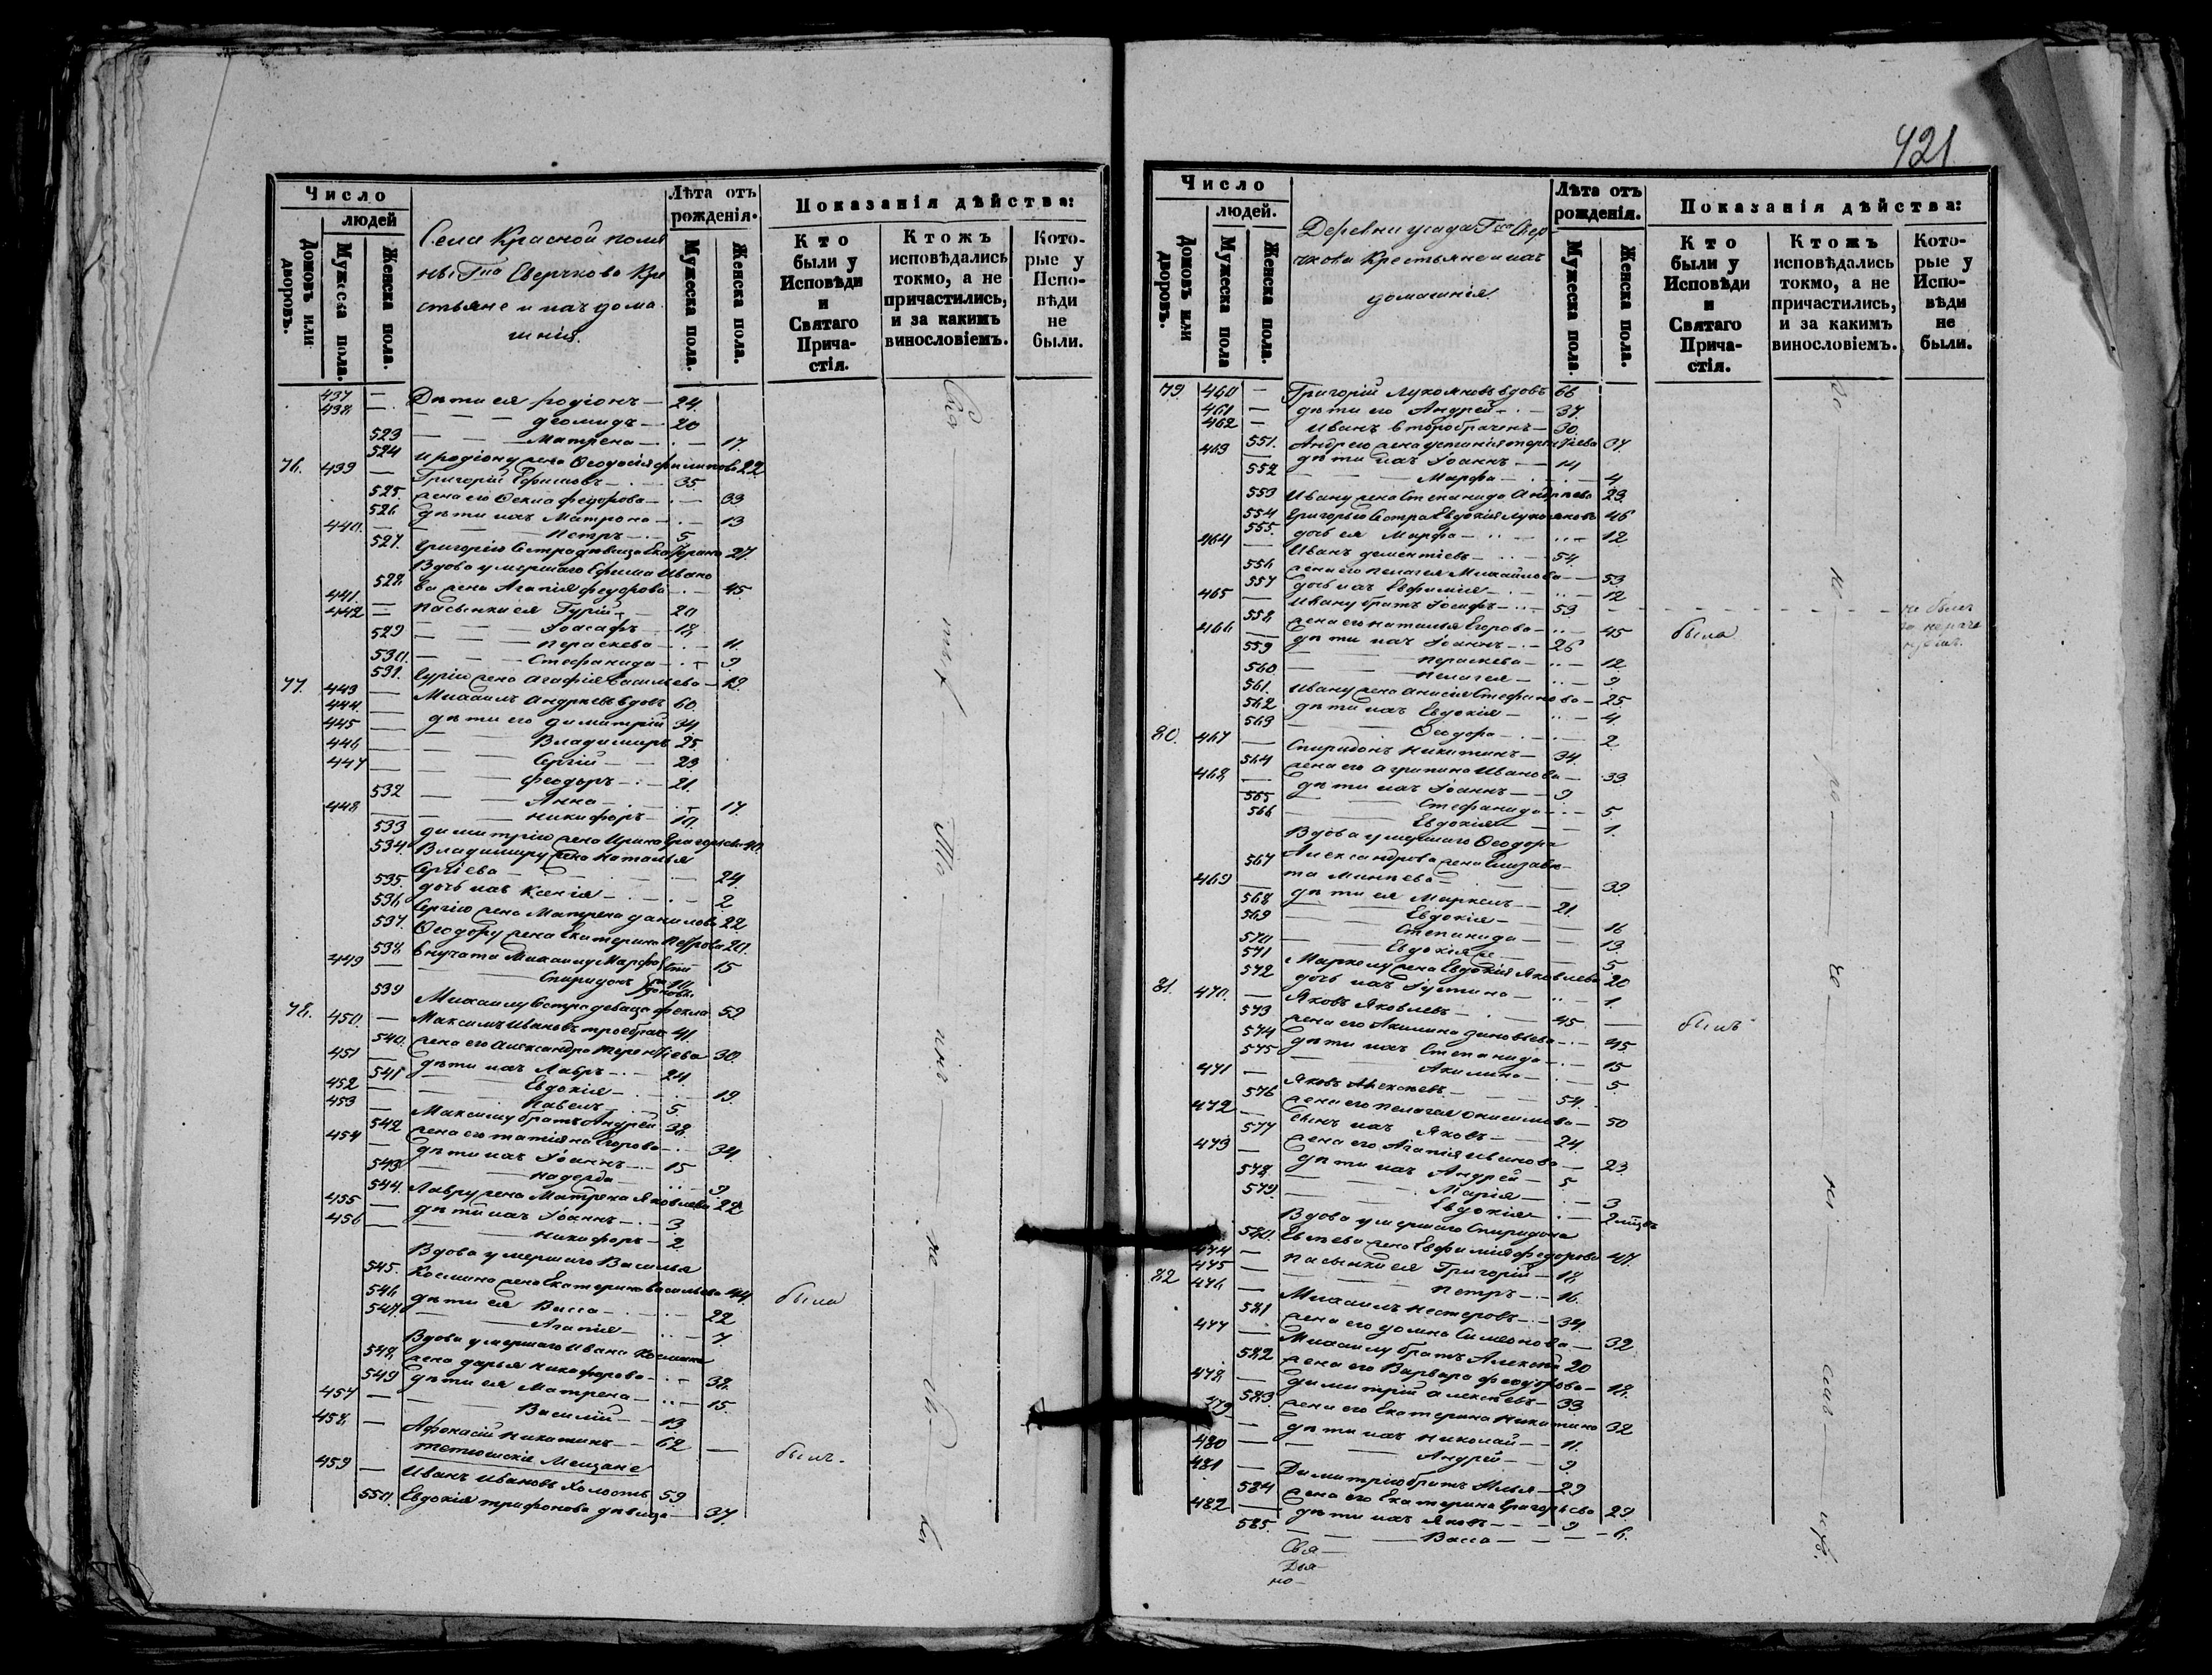 Число
людей
Домовъ или дворовъ.
Мужеска пола.
Женска пола.
Села Красной поля
ны Гна Сверчкова Кре
стьяне и ихъ дома
шнія.
Лѣта отъ рожденія.
Мужеска пола.
Женска пола.
Показанія дѣйства:
Кто были у Исповѣди и Святаго Причастія.
Ктожъ исповѣдались токмо, а не причастились, и за какимъ винословіемъ.
Которые у Исповѣди не были.
437 — Дѣти ея Родіонъ — 24.
438 — — — Деомидъ — 20
523 — — Матрена — 17.
524 Иродіону жена Феодосія Филипова 22
76. 439 — Григорій Ефимовъ — 35
525. жена его Фекла Федорова — 33
526 дѣти ихъ Матрона — 13
440. — — Петръ — 5
527. Григорію Сестра дѣвица Екатерина 27.
Вдова умершаго Ефима Ивано
528. ва жена Агапія Федорова — 45.
441. — Пасынки ея Гурій — 20
442 — — Іоасафъ — 18
529 — — Параскева — 11.
530. — — Стефанида — 9.
531. Гурію жена Агафія Васильева — 19.
77. 443 — Михаилъ Андреевъ вдовъ 60.
444. — дѣти его Димитрій 34.
445 — — Владимиръ 25.
446 — — Сергій — 23
447 — — Феодоръ — 21.
532 — — Анна — 17.
448 — — Никифоръ — 10.
533 Димитрію жена Ирина Григорьева 40.
534. Владимиру жена Наталья
Сергіева — 24.
535. дочь ихъ Ксенія — 2
536 Сергію жена Матрена Данилова 22
537. Феодору жена Екатерина Петрова 20.
538 Внучата Михаилу Марфа — 15
449 — — Спиридонъ 10
539 Михаилу Сестра девица Фекла 59
78. 450. — Максимъ Ивановъ троебрач. 41.
540. жена его Александра Терентіева 30.
451 — дѣти ихъ Лавръ — 24
541 — — Евдокія — 19.
452 — — Павелъ — 5.
453 — Максиму братъ Андрей 38.
542 жена его Татіяна Егорова — 34.
454 — дѣти ихъ Іоаннъ — 15
543 — — Надежда — 9
544. Лавру жена Матрена Яковлева 22
455 — дѣти ихъ Іоаннъ — 3
456 — — Никифоръ — 2
Вдова умершаго Василья
545. Космина жена Екатерина Васильева 44. была
546 дѣти ея Васса — 22
547. — Агапія — 7.
Вдова умершаго Ивана Космина
548. жена Дарья Никифорова — 38.
549 дѣти ея Матрена — 15.
457 — — Василій — 13.
458. — Афонасій Никитинъ — 62 — былъ.
Тетюшскіе Мещане
459 — Иванъ Ивановъ Холостъ 59
550. Евдокія Трифонова дѣвица — 37.
421
Число
людей.
Домовъ или дворовъ.
Мужеска пола
Женска пола.
Деревни усада Гна Свер
чкова Крестьяне и ихъ
домашнія.
Лѣта отъ рожденія.
Мужеска пола.
Женска пола.
Показанія дѣйства:
Кто были у Исповѣди и Святаго Причастія.
Ктожъ исповѣдались токмо, а не причастились, и за какимъ винословіемъ.
Которые у Исповѣди не были.
79. 460 — Григорій Лукояновъ вдовъ 66
461 — дѣти его Андрей — 37.
462 — Иванъ второбраченъ — 30.
551. Андрею жена 37.
463 — дѣти ихъ Іоаннъ — 14
552 — — Марфа — 4
553 Ивану жена Степанида Андреева 23.
554 Григорью Сестра Евдокія Лукоянова 46
555. дочь ея Марфа — 12
464 — Иванъ Дементіевъ — 54.
556 жена его Пелагея Михайлова — 53.
557 дочь ихъ Евфимія — 12
465 — Ивану братъ Іосифъ — 53 — не былъ
558. жена его Наталья Егорова — 45 была
466 — дѣти ихъ Іоаннъ — 26
559 — — Параскева — 12
560 — — Пелагея — 9
561. Ивану жена Анисія Стефанова — 25.
562 дѣти ихъ Евдокія — 4.
563 — — Феодора — 2
80. 467 — Спиридонъ Никитинъ — 34.
564 жена его Агрипина Иванова — 33
468 — дѣти ихъ Іоаннъ — 9
565 — — Стефанида — 5.
566 — — Евдокія — 1.
Вдова умершаго Феодора
567 Александрова жена Елизаве
та Минаева — 39.
469 — дѣти ея Маркелъ — 21.
568 — — Евдокія — 16
569 — — Степанида — 13
570 — — Евдокія — 5
571 Маркелу жена Евдокія Яковлева 20
572 дочь ихъ Іустина — 1.
81. 470. — Яковъ Яковлевъ — 45 — былъ
573 жена его Акилина Зиновьева — 45.
574 дѣти ихъ Степанида — 15
575 — — Акилина — 5.
471 — Яковъ Алексѣевъ — 54.
576 жена его Пелагея Онисимова — 50
472 — сынъ ихъ Яковъ — 24
577 жена его Агапія Иванова — 23.
473 — дѣти ихъ Андрей — 5
578. — — Марія — 3
579. — — Евдокія — 2
Вдова умершаго Спиридона
580. жена Евфимія Федорова 47.
474 — Пасынки ея Григорій — 18
475 — — Петръ — 16.
82 476 — Михаилъ Нестеровъ — 34
581 жена его Домна Симеонова — 32
477 — Михаилу братъ Алексѣй 20
582 жена его Варвара Феодорова — 18.
478 — Димитрій Алексѣевъ — 33
583. жена его Екатерина Никитина 32
479 — дѣти ихъ Николай — 11.
480 — — Андрей — 9.
481 — Димитрію братъ Илья — 29
584 жена его Екатерина Григорьева 29.
482 — дѣти ихъ Яковъ — 9
585. — — Васса — 6.
Свя —
Дья —
но —